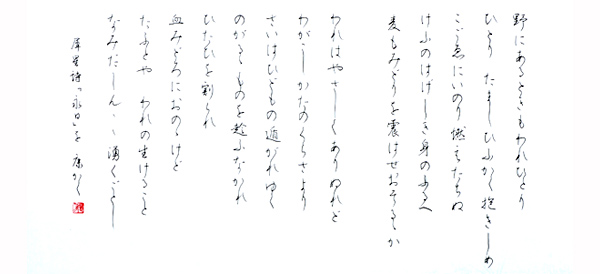 野にあるときもわれひとり
ひとり たましひふかく抱きしめ
こごゑにいのり燃えたちぬ
けふのはげしき身のふるへ
麦もみどりを震はせおそるるか
われはやさしくありぬれど
わがこしかたのくらさより
さいはひどもの遁がれゆく
のがるるものを趁ふなかれ
ひたひを割られ
血みどろにおのゝけど
たふとや われの生けること
なみだしん〱湧くごとし
犀星詩「永日」を かく